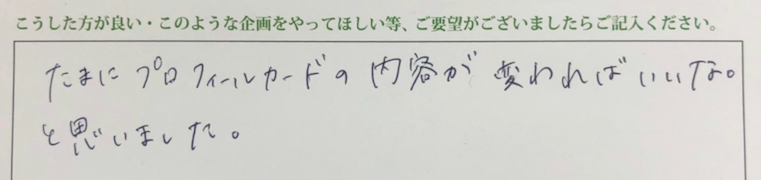 こうした方が良い・このような企画をやってほしい等、ご要望がございましたらご記入ください。
たまにプロフィールカードの内容が変わればいいな。
と思いました。